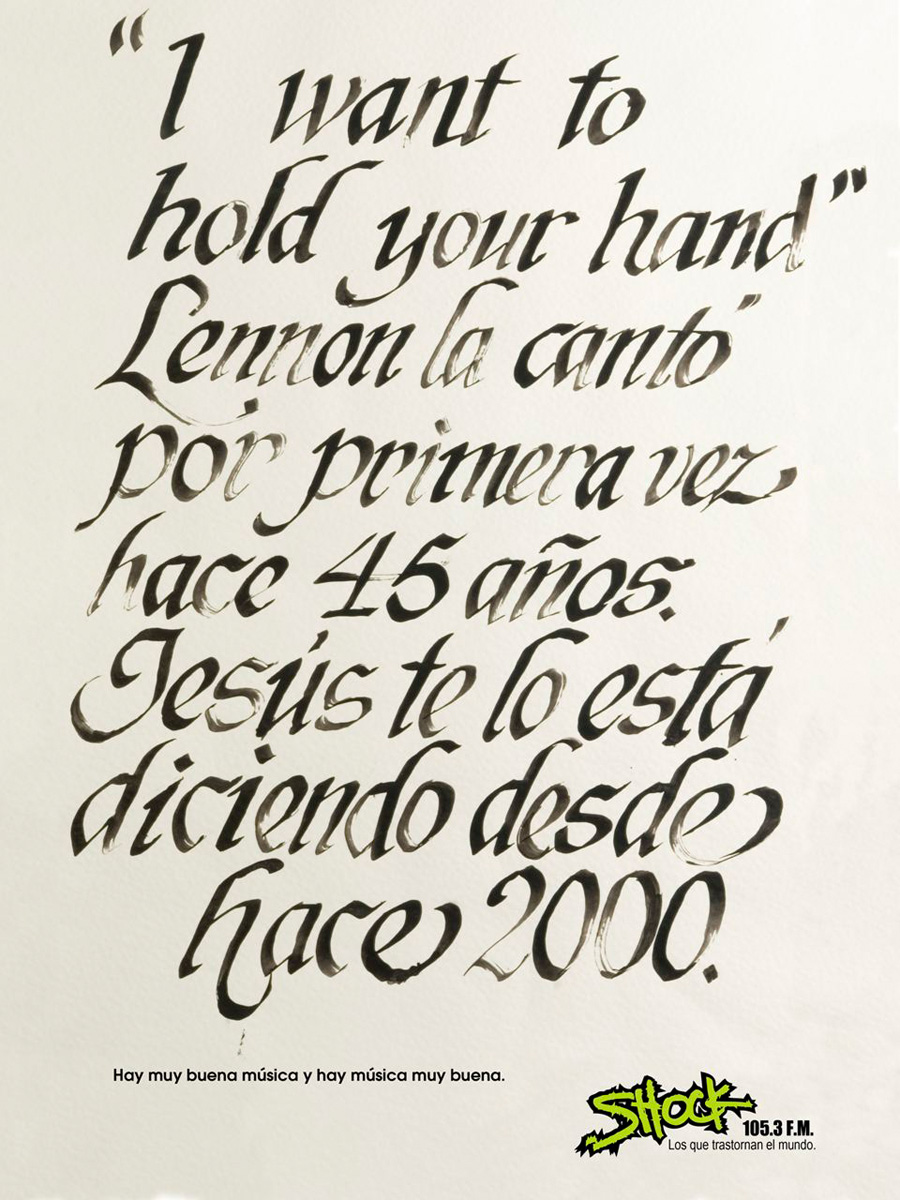 “I want to
hold your hand”
Lennon la cantó
por primera vez
hace 45 años.
Jesús te lo está
diciendo desde
hace 2000.
Hay muy buena música y hay música muy buena.
SHOCK
105.3 F.M.
Los que trastornan el mundo.